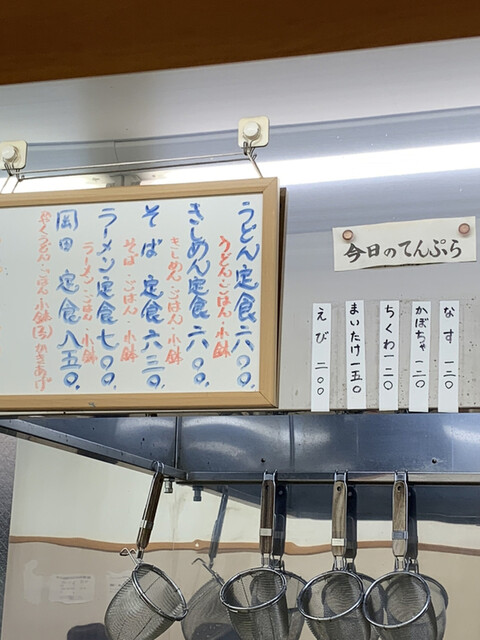 今日のてんぷら
なす 一三〇
かぼちゃ 一三〇
ちくわ 一二〇
まいたけ 一五〇
えび 二〇〇
うどん定食 六〇〇.
うどん・ごはん・小鉢
きしめん定食 六〇〇.
きしめん・ごはん・小鉢
そば 定食 六三〇.
そば・ごはん・小鉢
ラーメン定食 七〇〇.
ラーメン・ごはん・小鉢
岡田 定食 八五〇.
小鉢 かきあげ